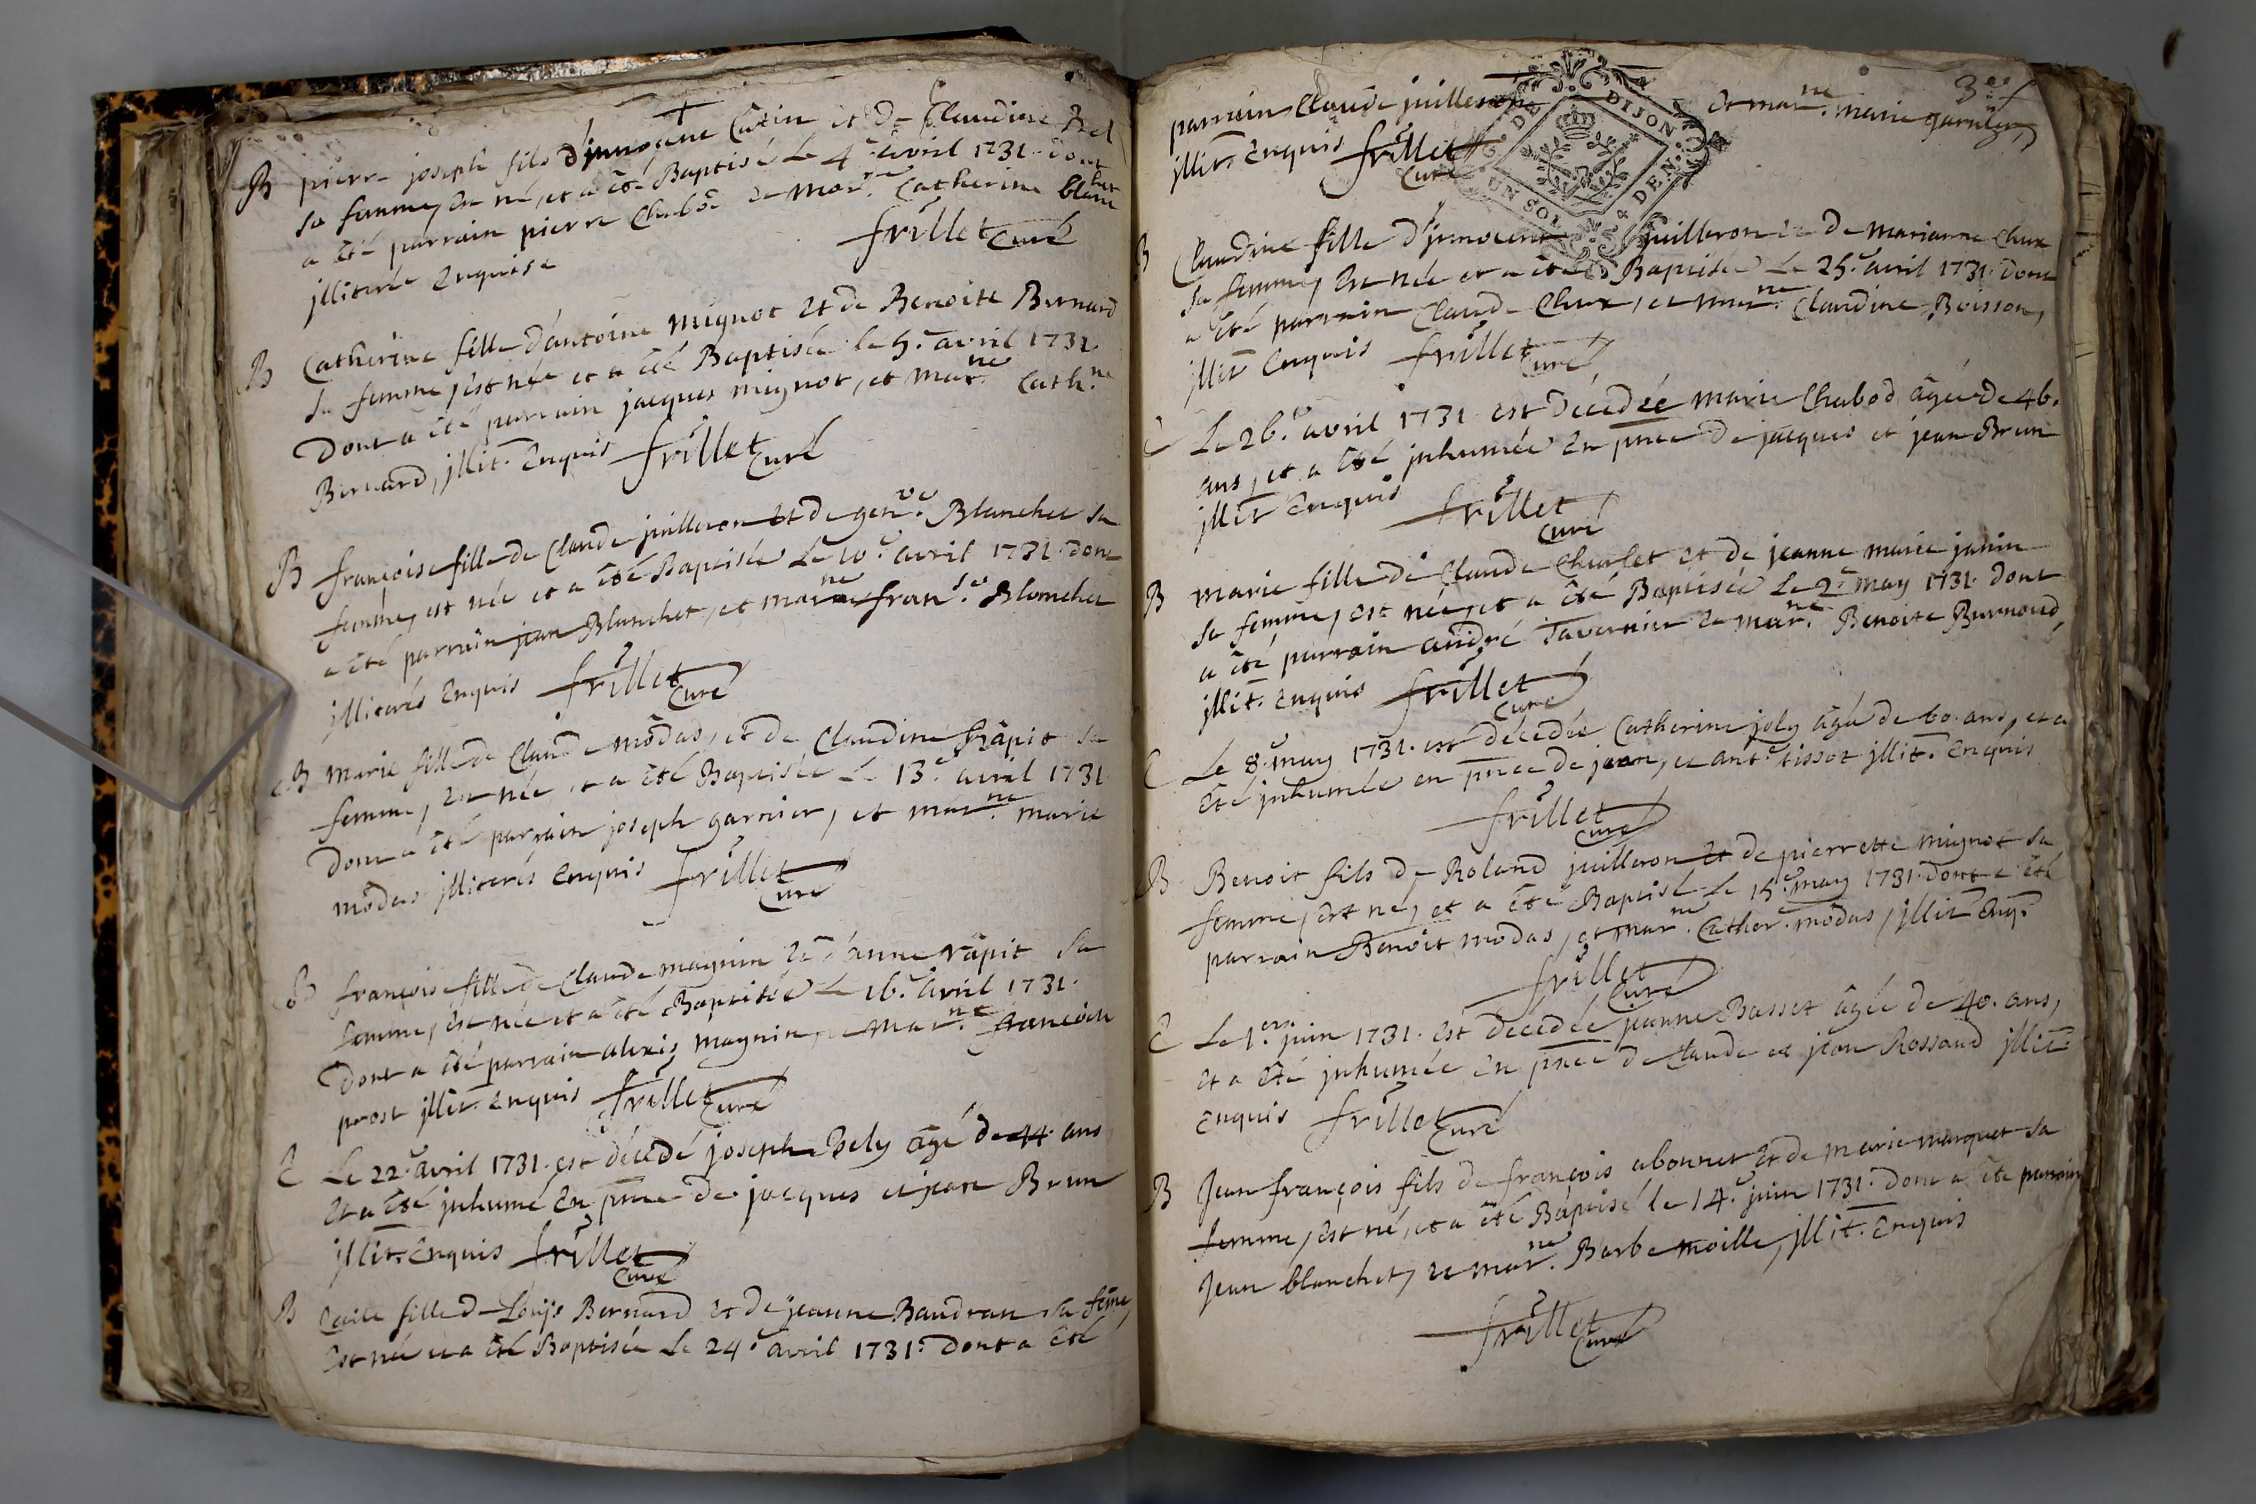 B pierre joseph fils d'jnnocent Catin et de Claudine Bel
sa femme, est né, et a été Baptisé le 4.e avril 1731. dont
a été parrain pierre Chabod et mar.ne Catherine blanchet
jlliterée Enquise
frillet Curé
B Catherine fille d'antoine mignot et de Benoite Bernard
sa femme, est née et a été Baptisée le 5.e avril 1731.
Dont a été parrain jacques mignot, et mar.ne Cath.ne
Bernard, jllit. Enquis frillet Curé
B françoise fille de Claude juilleron et de gen.ve Blanchet sa
femme, est née et a été Baptisée Le 10.e avril 1731. dont
a été parrain jean Blanchet, et marne fran.se Blanchet
jlliterés Enquis frillet Curé
B marie fille de Claude modas, et de Claudine Râpit sa
femme, est née et a été Baptisée Le 13.e avril 1731
Dont a été parrain joseph garnier, et mar.ne marie
modas jlliterés Enquis frillet Curé
B françoise fille de Claude magnin et d'anne râpit sa
femme, est née et a été Baptisée Le 16.e avril 1731.
Dont a été parrain alexis magnin, et mar.ne françoise
prost jllit. Enquis frillet Curé
E Le 22.e avril 1731. est décédé joseph Bely âgé de 44. ans,
Et a été jnhumé En pnce de jacques et jean Brun
jllit. Enquis frillet Curé
B Cecile fille de Louijs Bernard et de jeanne Baudran sa feme,
Est née et a été Baptisée Le 24.e avril 1731. Dont a été
3.e f
parrain Claude juilleron et mar.ne marie garnier,
jllit. Enquis frillet Curé
G. DE DIJON
UN SOL 4 DEN.
B Claudine fille d'jnnocent juilleron et de marianne Chux
sa femme, Est née et a été Baptisée Le 25.e avril 1731. Dont
a été parrain Claude Chux, et mar.ne Claudine Boisson,
jllit. Enquis frillet Curé
E Le 26.e avril 1731 est Décédée marie Chabod âgée de 46.
ans, et a été jnhumée En pnce de jacques et jean Brun
jllit Enquis frillet Curé
B marie fille de Claude Charlet et de jeanne marie janin
sa femme, est née, et a été Baptisée Le 2.e may 1731. Dont
a été parrain andré Tavernier et mar.ne Benoite Burnoud,
jllit. Enquis frillet Curé
E Le 8.e may 1731. est décédée Catherine joly âgée de 60. ans, et a
Eté jnhumée en pnce de jean, et ant.e tissot jllit. Enquis
frillet Curé
B Benoit fils de Roland juilleron Et de pierrette mignot sa
femme, est né, et a été Baptisé Le 15.e may 1731. dont a été
parrain Benoit modas, et mar.ne Cather. modas, jllit Enq.s
frillet Curé
E Le 1.er juin 1731. est decedée jeanne Basset âgée de 40. ans,
Et a Eté jnhumée En pnce de Claude et jean Rossand jllit.
Enquis frillet Curé
B Jean françois fils de françois abonnet Et de marie marquet sa
femme, est né, et a été Baptisé le 14.e juin 1731. Dont a été parrain
Jean blanchet, et mar.ne Barbe moille, jllit. Enquis
frillet Curé